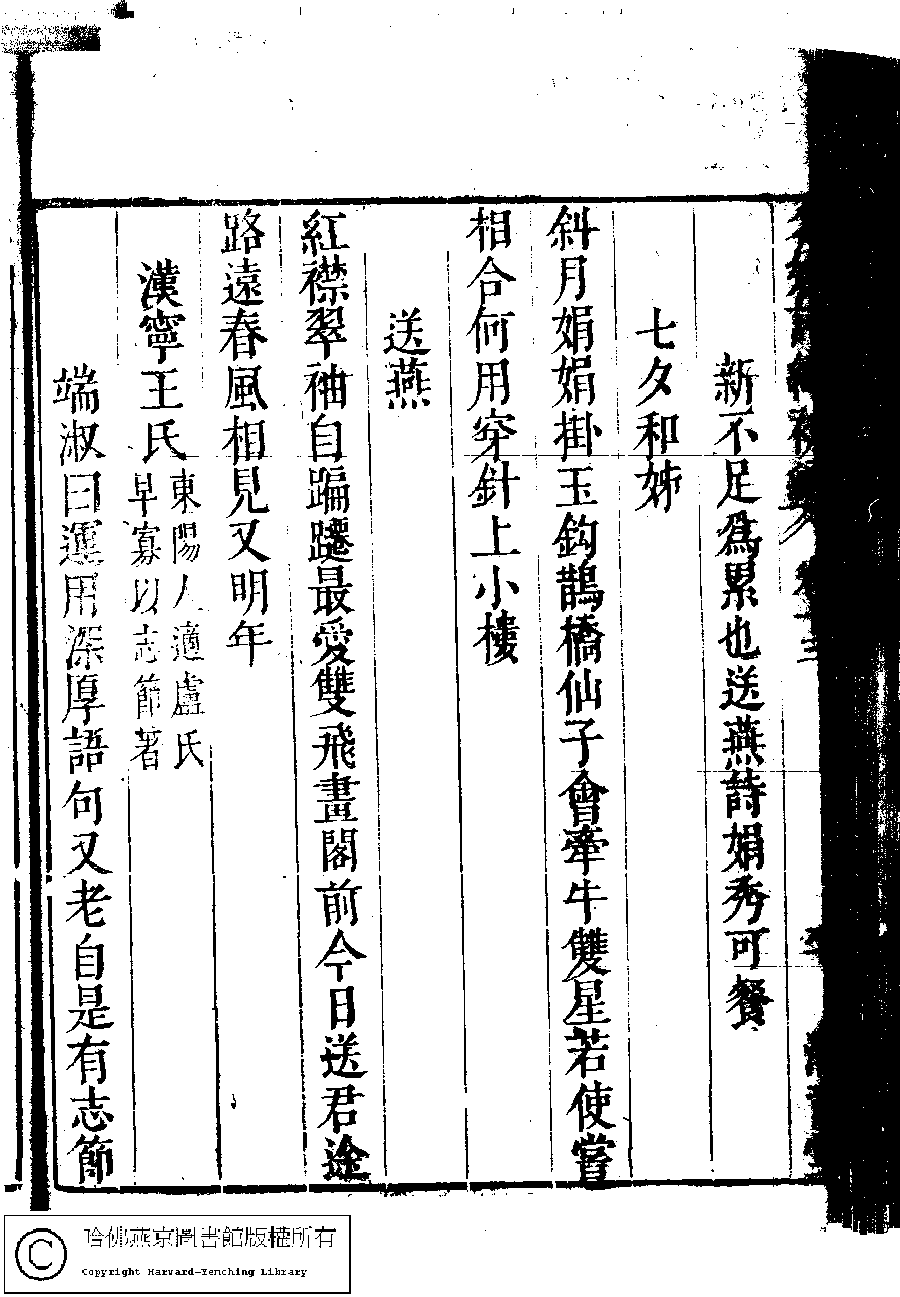 新不足爲累也送燕詩娟秀可餐
七夕和姊
斜月娟娟掛玉鈎鵲橋仙子會牽牛雙星若使嘗
相合何用穿針上小樓
送燕
紅襟翠袖自蹁躚最愛雙飛畫閣前今日送君途
路遠春風相見又明年
漢寧王氏
東陽人適盧氏
早寡以志節著
端淑曰運用深厚語句又老自是有志節
哈佛燕京圖書館版權所有
Copyright Harvard-Yenching Library